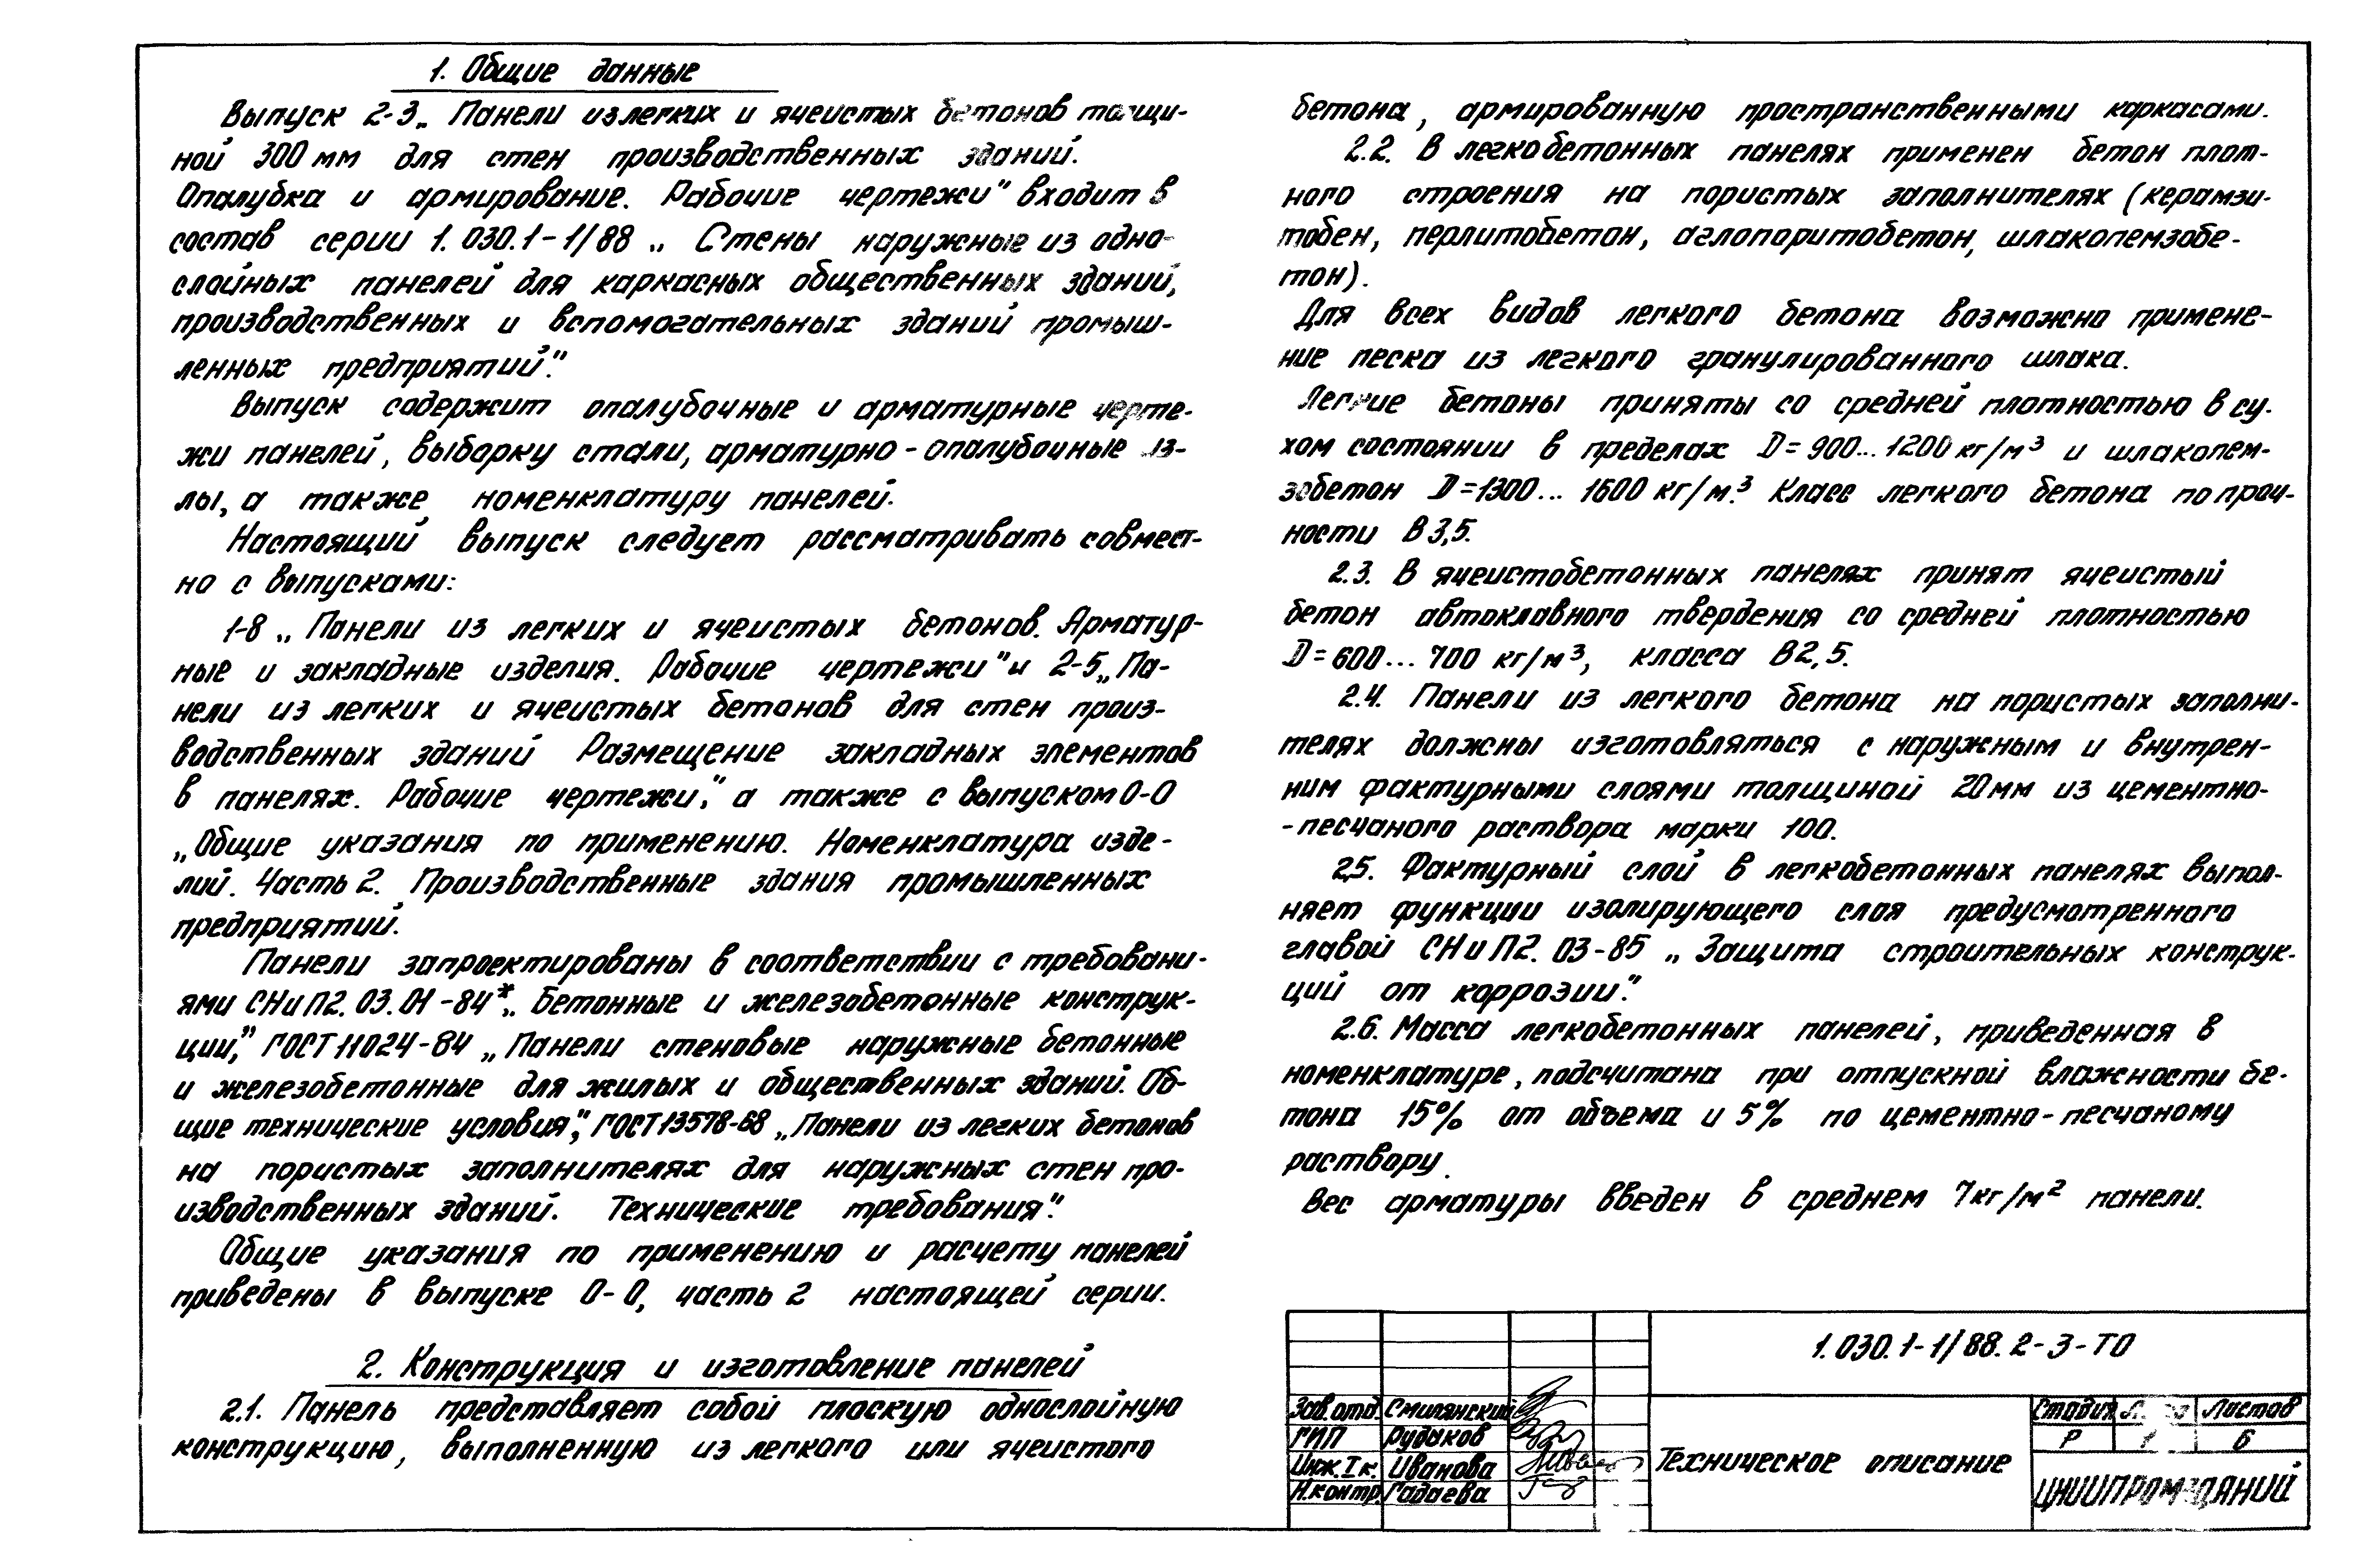 1. Общие данные
Выпуск 2-3 „Панели из легких и ячеистых бетонов толщи-
ной 300 мм для стен производственных зданий.
Опалубка и армирование. Рабочие чертежи" входит в
состав серии 1.030.1-1/88 „Стены наружные из одно-
слойных панелей для каркасных общественных зданий,
производственных и вспомогательных зданий промыш-
ленных предприятий".
Выпуск содержит опалубочные и арматурные черте-
жи панелей, выборку стали, арматурно-опалубочные уз-
лы, а также номенклатуру панелей.
Настоящий выпуск следует рассматривать совмест-
но с выпусками:
1-8 „Панели из легких и ячеистых бетонов. Арматур-
ные и закладные изделия. Рабочие чертежи" и 2-5 „Па-
нели из легких и ячеистых бетонов для стен произ-
водственных зданий Размещение закладных элементов
в панелях. Рабочие чертежи", а также с выпуском 0-0
„Общие указания по применению. Номенклатура изде-
лий. Часть 2. Производственные здания промышленных
предприятий.
Панели запроектированы в соответствии с требовани-
ями СНиП2.03.01-84* „Бетонные и железобетонные конструк-
ции", ГОСТ 11024-84 „Панели стеновые наружные бетонные
и железобетонные для жилых и общественных зданий. Об-
щие технические условия", ГОСТ 13578-68 „Панели из легких бетонов
на пористых заполнителях для наружных стен про-
изводственных зданий. Технические требования".
Общие указания по применению и расчету панелей
приведены в выпуске 0-0, часть 2 настоящей серии.
2. Конструкция и изготовление панелей
2.1. Панель представляет собой плоскую однослойную
конструкцию, выполненную из легкого или ячеистого
бетона, армированную пространственными каркасами.
2.2. В легкобетонных панелях применен бетон плот-
ного строения на пористых заполнителях (керамзи-
тобен, перлитобетон, аглопоритобетон, шлакопемзобе-
тон).
Для всех видов легкого бетона возможно примене-
ние песка из легкого гранулированного шлака.
Легкие бетоны приняты со средней плотностью в су-
хом состоянии в пределах D=900...1200 кг/м³ и шлакопем-
зобетон D=1300... 1600 кг/м.³ Класс легкого бетона по проч-
ности В3,5.
2.3. В ячеистобетонных панелях принят ячеистый
бетон автоклавного твердения со средней плотностью
D=600... 700 кг/м³, класса В2,5.
2.4. Панели из легкого бетона на пористых заполни-
телях должны изготовляться с наружным и внутрен-
ним фактурными слоями толщиной 20 мм из цементно-
-песчаного раствора марки 100.
2.5. Фактурный слой в легкобетонных панелях выпол-
няет функции изолирующего слоя предусмотренного
главой СНиП2.03-85 „Защита строительных конструк-
ций от коррозии".
2.6. Масса легкобетонных панелей, приведенная в
номенклатуре, подсчитана при отпускной влажности бе-
тона 15% от объема и 5% по цементно-песчаному
раствору.
Вес арматуры введен в среднем 7кг/м² панели.
1.030.1-1/88.2-3-ТО
Зав.отд. Смилянский
ГИП Рудаков
Инж. I к. Иванова
Н.контр. Гадаева
Техническое описание
Стадия Лист Листов
Р 1 6
ЦНИИПРОМЗДАНИЙ